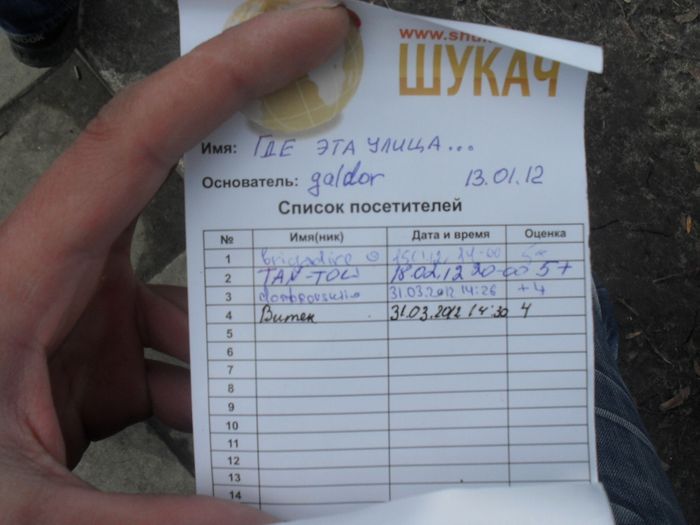 www.shu
ШУКАЧ
Имя: ГДЕ ЭТА УЛИЦА...
Основатель: galdor 13.01.12
Список посетителей
№ Имя(ник) Дата и время Оценка
1 brigadire
2 TAN-TOW 18.02.12 20-00 5+
3 31.03.2012 14:26 +4
4 Витек 31.03.2012 14:30 4
5
6
7
8
9
10
11
12
13
14